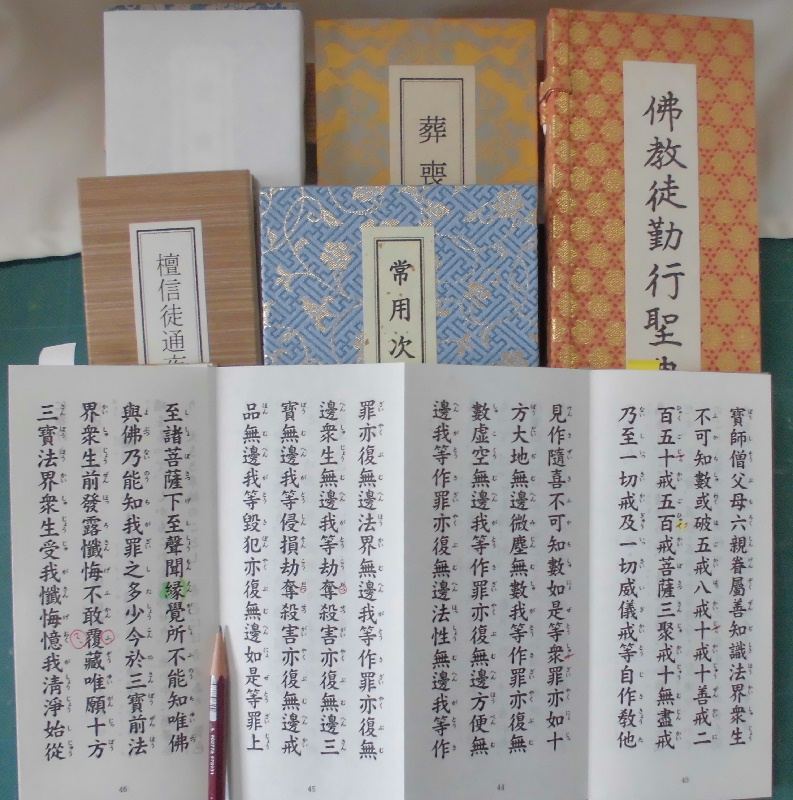 葬喪
佛教徒勤行聖典
檀信徒通夜
常用次
寶師僧父母六親眷屬善知識法界衆生
不可知數或破五戒八戒十戒十善戒二
百五十戒五百戒菩薩三聚戒十無盡戒
乃至一切戒及一切威儀戒等自作教他
43
見作隨喜不可知數如是等衆罪亦如十
方大地無邊微塵無數我等作罪亦復無
數虛空無邊我等作罪亦復無邊方便無
邊我等作罪亦復無邊法性無邊我等作
44
罪亦復無邊法界無邊我等作罪亦復無
邊衆生無邊我等劫奪殺害亦復無邊三
寶無邊我等侵損劫奪殺害亦復無邊戒
品無邊我等毀犯亦復無邊如是等罪上
45
至諸菩薩下至聲聞縁覺所不能知唯佛
與佛乃能知我罪之多少今於三寶前法
界衆生前發露懺悔不敢覆藏唯願十方
三寶法界衆生受我懺悔憶我清淨始從
46